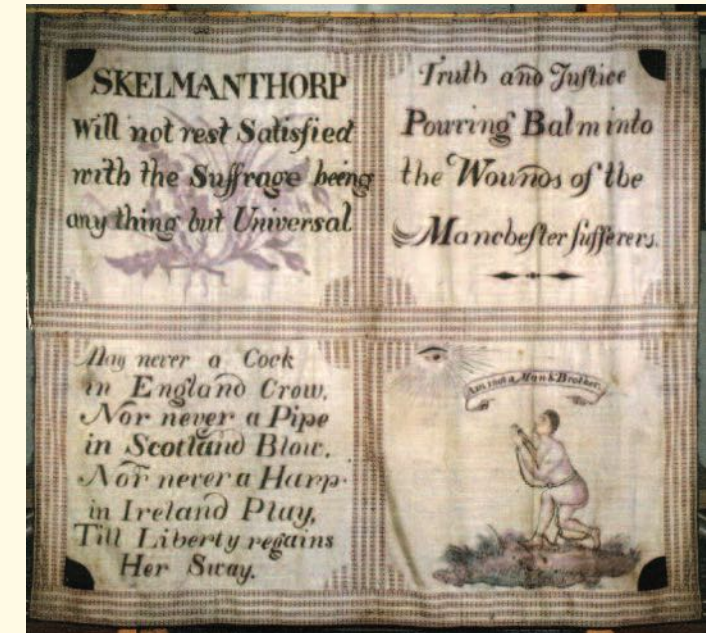 SKELMANTHORP
Will not rest Satisfied
with the Suffrage being
any thing but Universal
Truth and Juſtice
Pouring Balm into
the Wounds of the
Mancheſter ſufferers.
May never a Cock
in England Crow,
Nor never a Pipe
in Scotland Blow.
Nor never a Harp
in Ireland Play,
Till Liberty regains
Her Sway.
Am not a Man & Brother